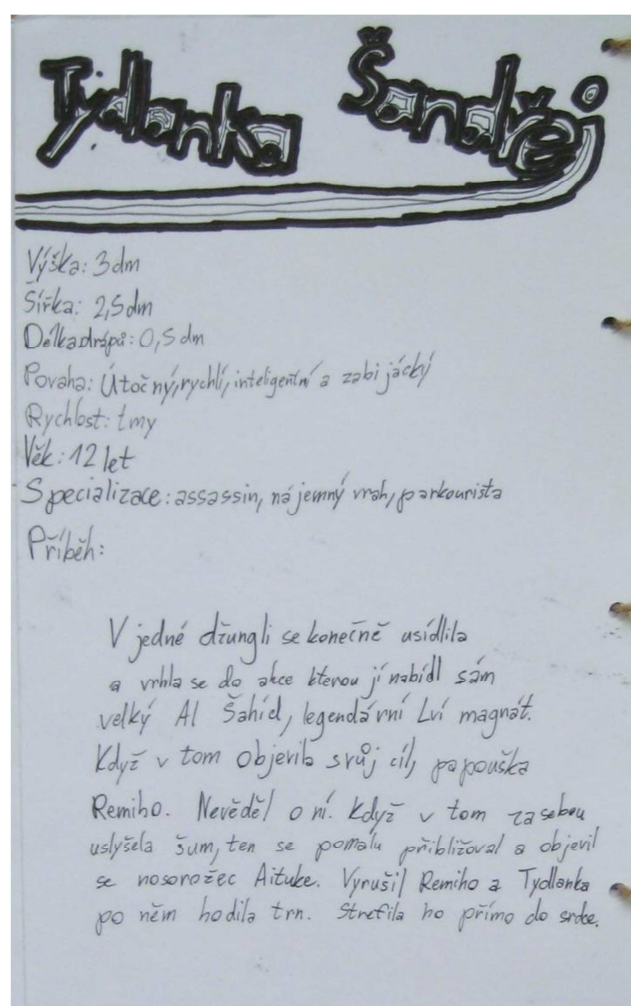 Tydlanka Šandřej
Výška: 3dm
Šířka: 2,5dm
Délka drápů: 0,5 dm
Povaha: Útočný, rychlí, inteligentní a zabijácký
Rychlost: tmy
Věk: 12 let
Specializace: assassin, nájemný vrah, parkourista
Příběh:
V jedné džungli se konečně usídlila
a vrhla se do akce kterou jí nabídl sám
velký Al Šahíd, legendární Lví magnát.
Když v tom objevila svůj cíl, papouška
Remiho. Nevěděl o ní. Když v tom za sebou
uslyšela šum, ten se pomalu přibližoval a objevil
se nosorožec Aituke. Vyrušil Remiho a Tydlanka
po něm hodila trn. Strefila ho přímo do srdce.